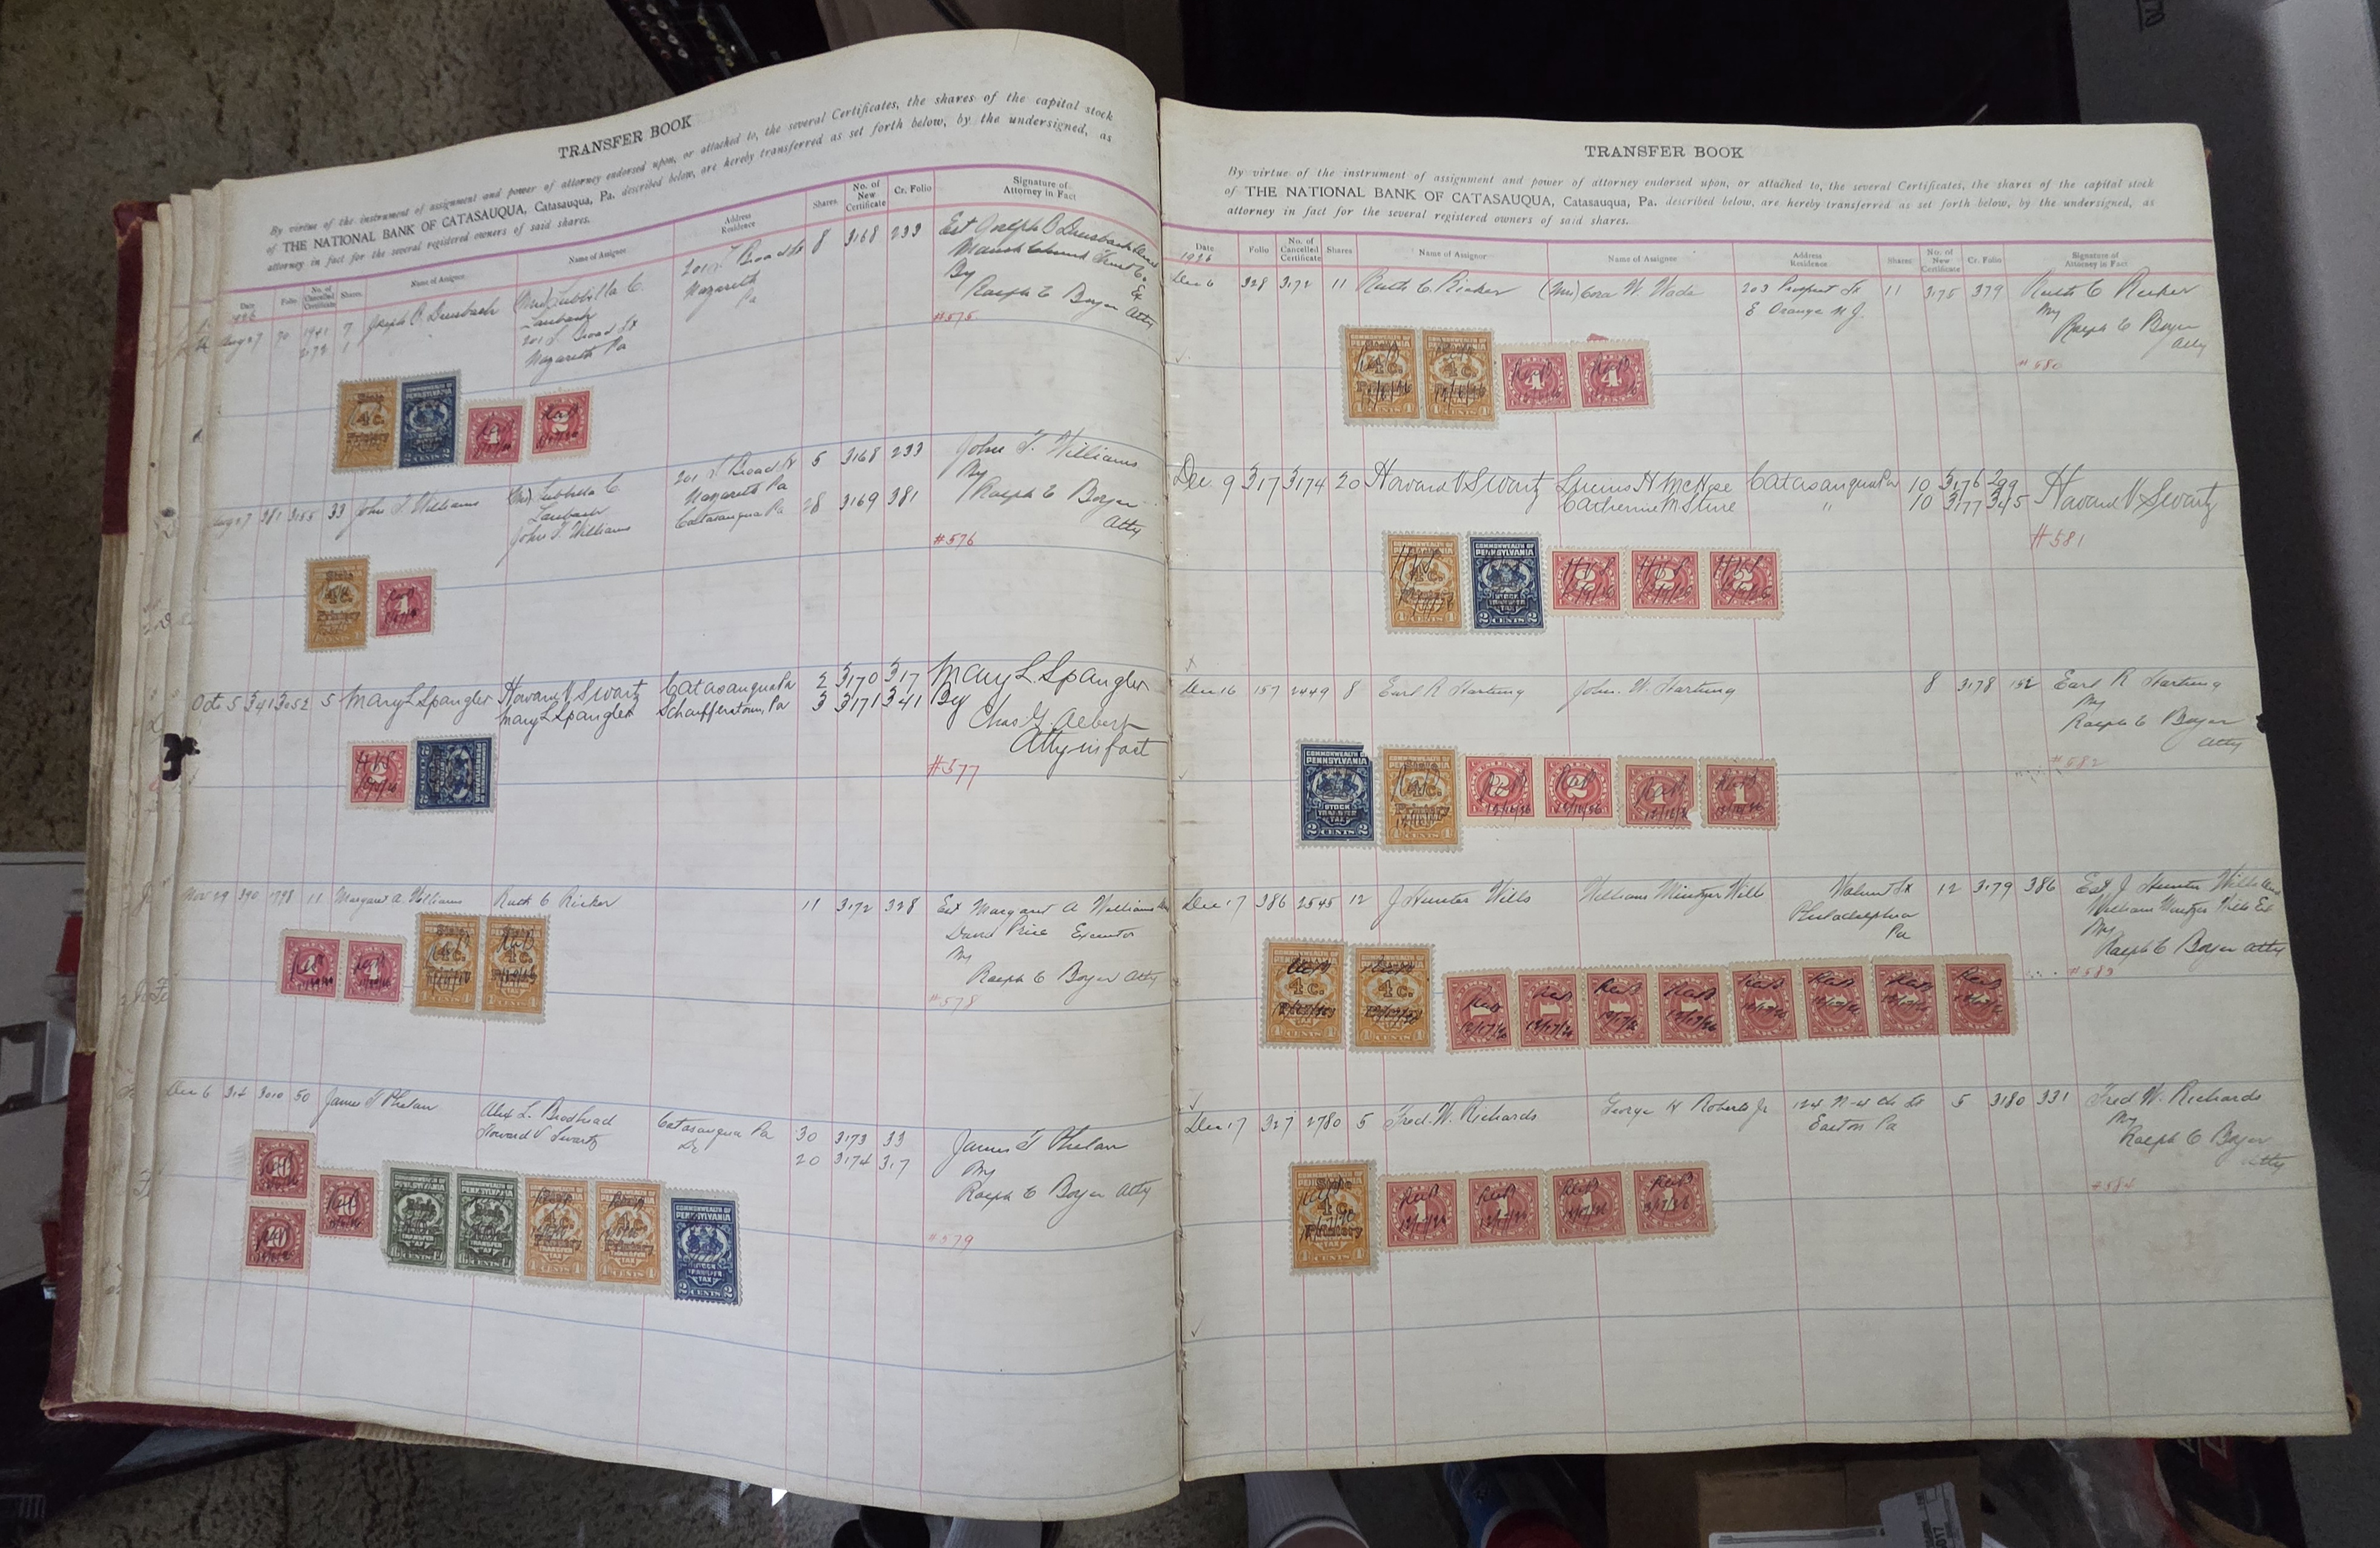 TRANSFER BOOK
By virtue of the instrument of assignment and power of attorney endorsed upon, or attached to, the several Certificates, the shares of the capital stock
of THE NATIONAL BANK OF CATASAUQUA, Catasauqua, Pa. described below, are hereby transferred as set forth below, by the undersigned, as
attorney in fact for the several registered owners of said shares.
Date Folio No. of Cancelled Certificate Shares Name of Assignor Name of Assignee Address Residence Shares No. of New Certificate Cr. Folio Signature of Attorney in Fact
Aug 27 70 1941 7 Joseph O. (Mrs) C. 8 3168 233 Est Joseph O
2172 1 Laubach Nazareth
201 S Broad St Pa By
Nazareth Pa Ralph C Boyer Atty
#575
4c. 2 CENTS 2 4 2
Aug 27 381 3155 33 John T. Williams (Mrs) C 201 S Broad St 5 3168 233 John T. Williams
Laubach Nazareth Pa By
John T. Williams Catasauqua Pa 28 3169 381 Ralph C Boyer
Atty
#576
4c. 4
Oct 5 341 3052 5 Mary L Spangler Howard V Swartz Catasauqua Pa 2 3170 317 Mary L. Spangler
Mary L Spangler Schaefferstown, Pa 3 3171 341 By
Chas G. Albert
Atty in fact
#577
2 2 CENTS 2
Nov 29 390 1798 11 Margaret A. Williams Ruth C Ricker 11 3172 328 Est Margaret A Williams
David Price Executor
By
Ralph C Boyer Atty
#578
4 4 4c. 4c.
Dec 6 314 3010 50 James T Phelan Alex L. Brodhead Catasauqua Pa 30 3173 33 James T Phelan
Howard V Swartz Do 20 3174 317 By
Ralph C Boyer Atty
#579
COMMONWEALTH OF PENNSYLVANIA STOCK TRANSFER TAX 2 CENTS 2
TRANSFER BOOK
By virtue of the instrument of assignment and power of attorney endorsed upon, or attached to, the several Certificates, the shares of the capital stock
of THE NATIONAL BANK OF CATASAUQUA, Catasauqua, Pa. described below, are hereby transferred as set forth below, by the undersigned, as
attorney in fact for the several registered owners of said shares.
Date Folio No. of Cancelled Certificate Shares Name of Assignor Name of Assignee Address Residence Shares No. of New Certificate Cr. Folio Signature of Attorney in Fact
1926
Dec 6 328 3172 11 Ruth C. Ricker (Mrs) Cora W. Wade 203 Prospect St 11 3175 379 Ruth C Ricker
E Orange N.J. By
Ralph C Boyer
Atty
#580
4c. 4c. 4 4
Dec. 9 317 3174 20 Howard V Swartz H McHose Catasauqua Pa 10 3176 299 Howard V Swartz
Catherine M " 10 3177 345
#581
4c. COMMONWEALTH OF PENNSYLVANIA STOCK TRANSFER TAX 2 CENTS 2 2 2 2
Dec 16 157 2449 8 Earl R Hartung John. W. Hartung 8 3178 152 Earl R Hartung
By
Ralph C Boyer
Atty
#582
COMMONWEALTH OF PENNSYLVANIA STOCK TRANSFER TAX 2 CENTS 2 4c. 2 2 1 1
Dec 17 386 2545 12 J Hunter Wills William Mintzer Wills Walnut St 12 3179 386 Est J. Hunter Wills
Philadelphia William Mintzer Wills Ex
Pa By
Ralph C Boyer Atty
#583
4c. 4c. 1 1 1 1 1 1 1 1
Dec 17 327 2780 5 Fred. W. Richards George H Roberts Jr 124 N-4th St 5 3180 331 Fred W. Richards
Easton Pa By
Ralph C Boyer
Atty
#584
4c. 1 1 1 1